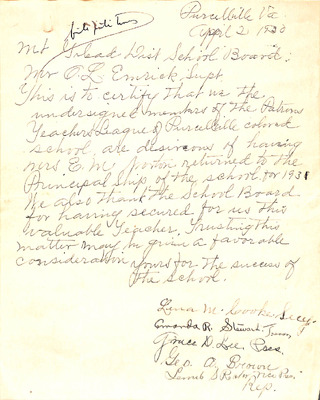 Purcellville Va.
April 2 1930
Mt Gilead Dist School Board;
Mr O. L. Emrick, Supt
This is to certify that we the
undersigned members of the Patrons
Teachers League of Purcellville colored
school, are desireous of having
mrs E. M. returned to the
Principal Ship of the school for 1931
We also thank the School Board
for having secured for us this
valuable Teacher. Trusting this
matter may be given a favorable
consideration yours for the success of
the school.
Lena M. Cooke Secy.
Amanda R. Stewart Treas.
Grace D. Lee Pres.
Geo. A. Brown
Vice Pres.
Rep.